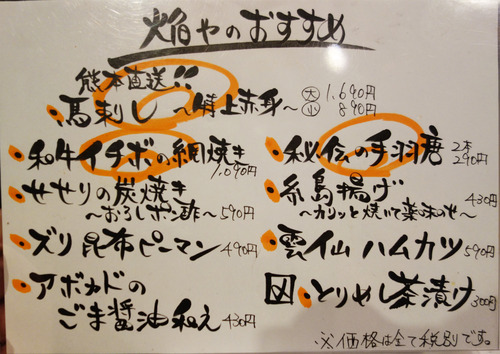 焔やのおすすめ
熊本直送!!
・馬刺し 〜特上赤身〜 大 1,690円
小 890円
・和牛イチボの網焼き 1,090円
・せせりの炭焼き
〜おろしポン酢〜 590円
・ズリ昆布ピーマン 490円
・アボカドの
ごま醤油和え 430円
・秘伝の手羽唐 2本 290円
・糸島揚げ 430円
〜カリッと焼いて薬味のせ〜
・雲仙ハムカツ 590円
〆・とりめし茶漬け 300円
※価格は全て税別です。